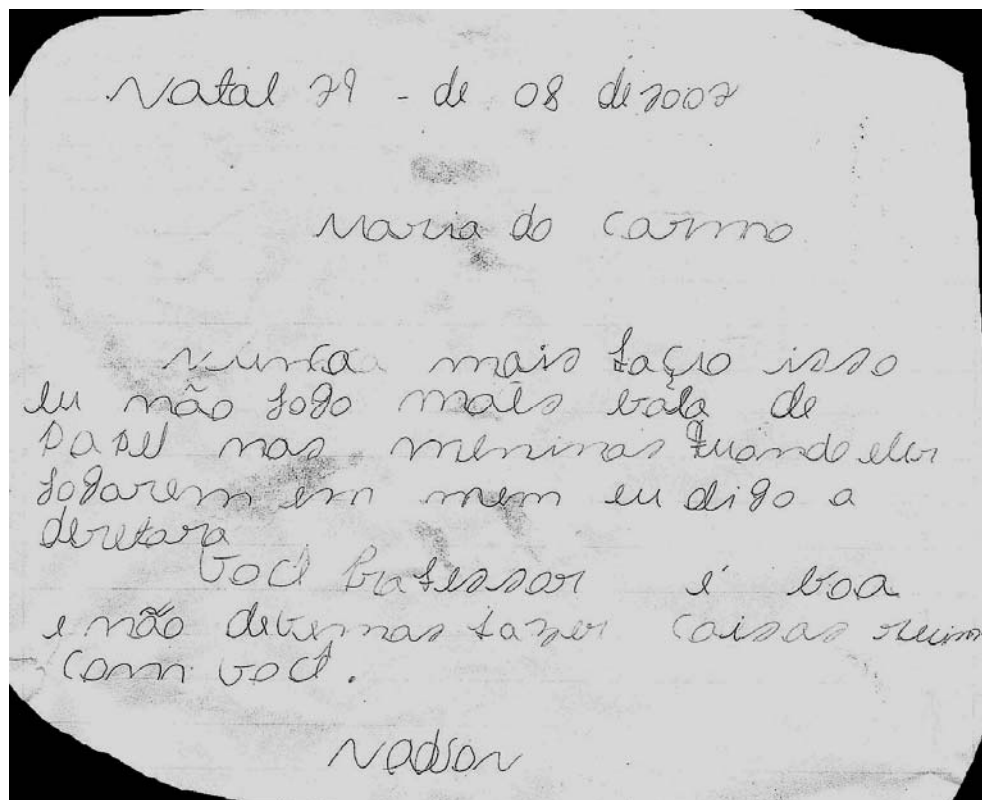 Natal 29 - de 08 de 2007
Maria do Carmo
Nunca mais faço isso
eu não jogo mais bola de
papel nas meninas quando eles
jogarem em mem eu digo a
deretora
você Professor é boa
e não devemas fazer coisas ruim
com você.
Nadson